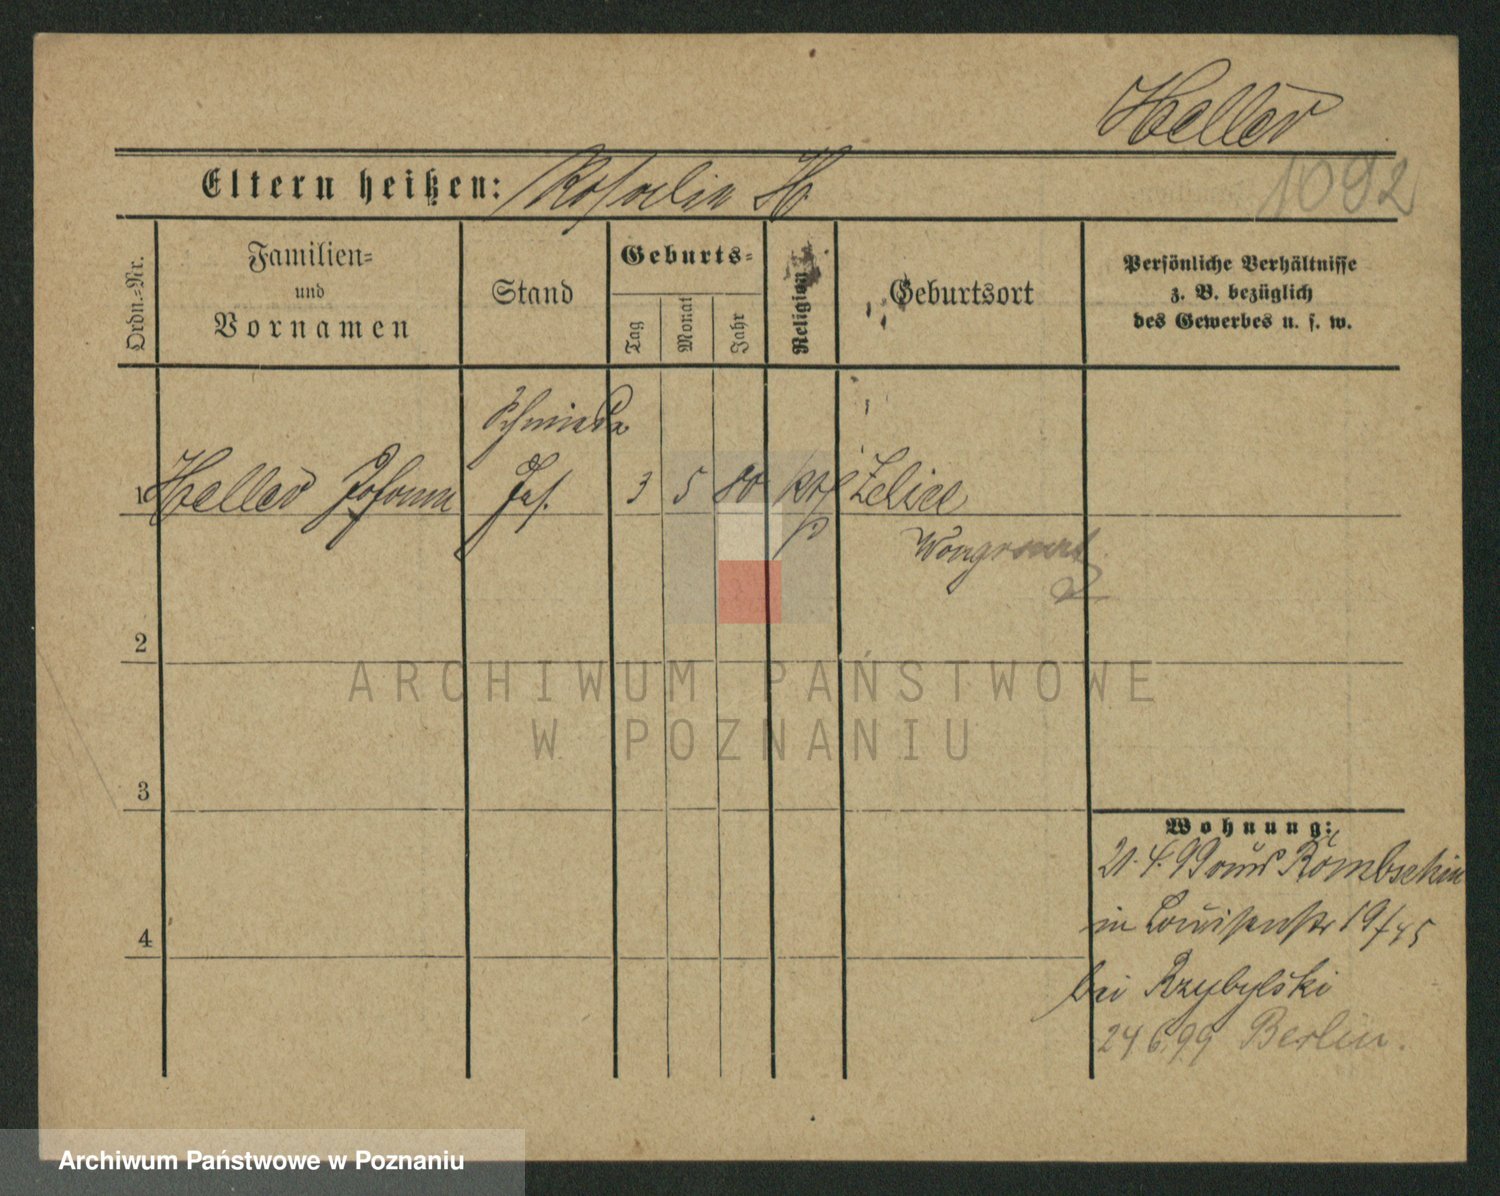 Heller
1092
Eltern heißen: Rosalie H
Ordn.=Nr.
Familien=
und
Vornamen
Stand
Geburts=
Tag
Monat
Jahr
Religion
Geburtsort
Persönliche Verhältnisse
z. B. bezüglich
des Gewerbes u. s. w.
Schmiede
1 Heller Johann Ges. 3 5 80 kth Zelice
Wongrowitz
2
3
4
Wohnung:
21.4.99 aus Rombschin
in Louisenstr 19/
bei Przybylski
24 6.99 Berlin.
ARCHIWUM PAŃSTWOWE
W POZNANIU
Archiwum Państwowe w Poznaniu